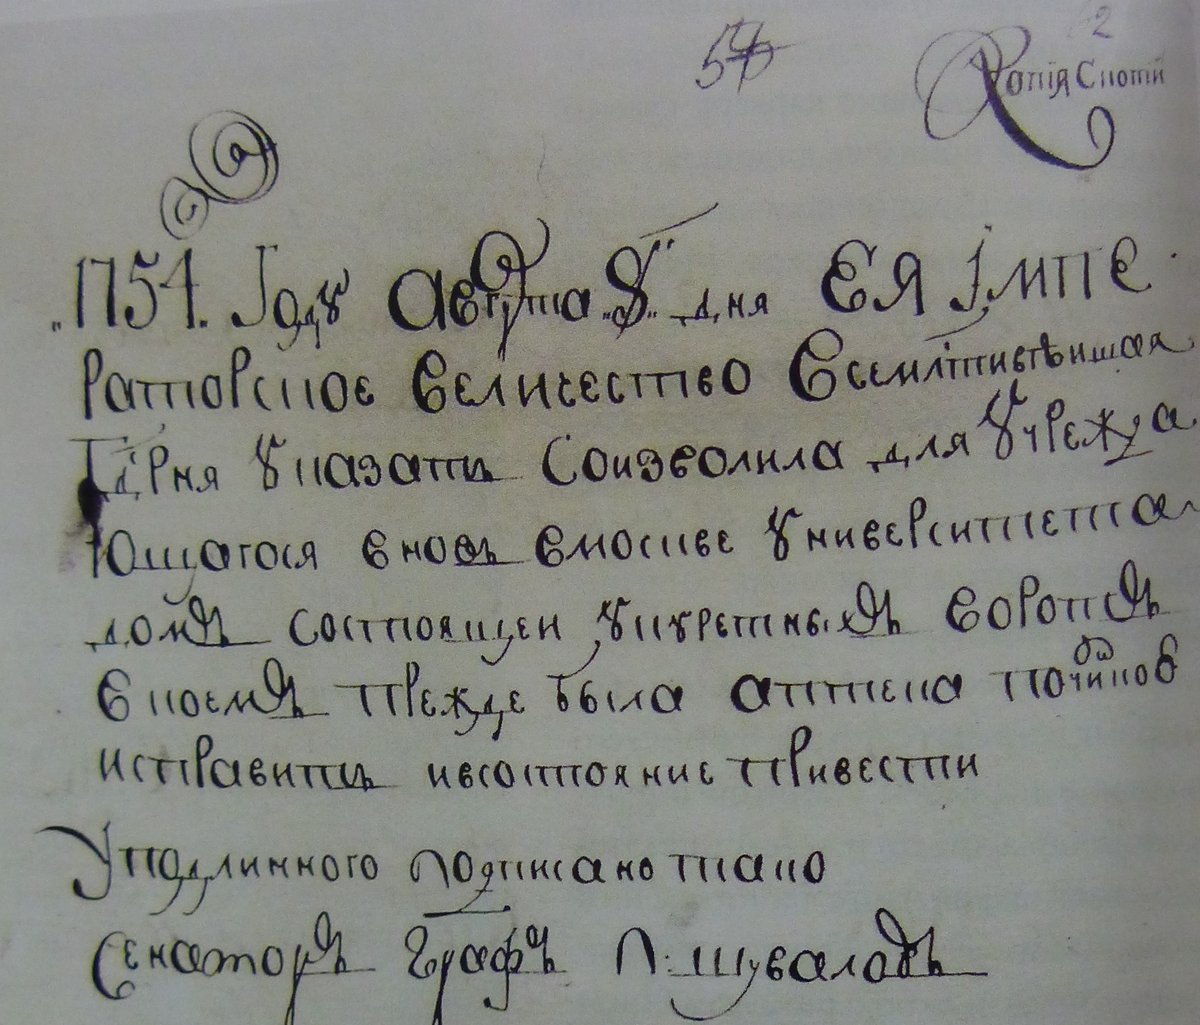 57
2
Копія Скопіи
1754. Году Августа 8. дня ЕЯ ІМПЕ
раторское величество Всемлтивѣишая
Гдрня указать Соизволила для учрежда
ющагося вновь вмоскве университета
домъ состоящеи укуретныхъ воротъ
вкоемъ прежде была аптека починкою
исправить ивсостояние привести
Уподлинного подписано тако
Сенаторъ Графъ П: шуваловъ